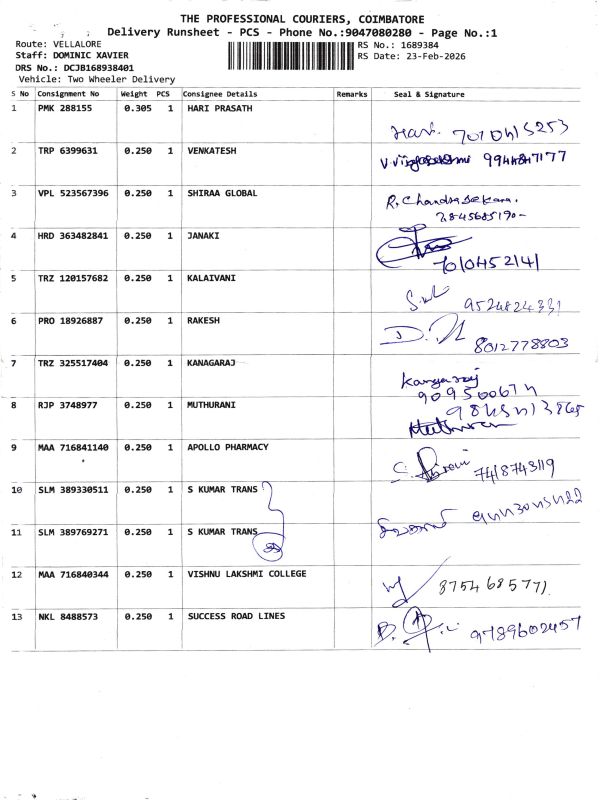 THE PROFESSIONAL COURIERS, COIMBATORE
Delivery Runsheet - PCS - Phone No.:9047080280 - Page No.:1
Route: VELLALORE RS No.: 1689384
Staff: DOMINIC XAVIER RS Date: 23-Feb-2026
DRS No.: DCJB168938401
Vehicle: Two Wheeler Delivery
S No Consignment No Weight PCS Consignee Details Remarks Seal & Signature
1 PMK 288155 0.305 1 HARI PRASATH
2 TRP 6399631 0.250 1 VENKATESH
3 VPL 523567396 0.250 1 SHIRAA GLOBAL R. Chandrasekaran.
4 HRD 363482841 0.250 1 JANAKI
7010452141
5 TRZ 120157682 0.250 1 KALAIVANI
9524824331
6 PRO 18926887 0.250 1 RAKESH
8012778803
7 TRZ 325517404 0.250 1 KANAGARAJ
8 RJP 3748977 0.250 1 MUTHURANI
9 MAA 716841140 0.250 1 APOLLO PHARMACY
7418743119
10 SLM 389330511 0.250 1 S KUMAR TRANS
11 SLM 389769271 0.250 1 S KUMAR TRANS
12 MAA 716840344 0.250 1 VISHNU LAKSHMI COLLEGE
8754685771
13 NKL 8488573 0.250 1 SUCCESS ROAD LINES
9789602457